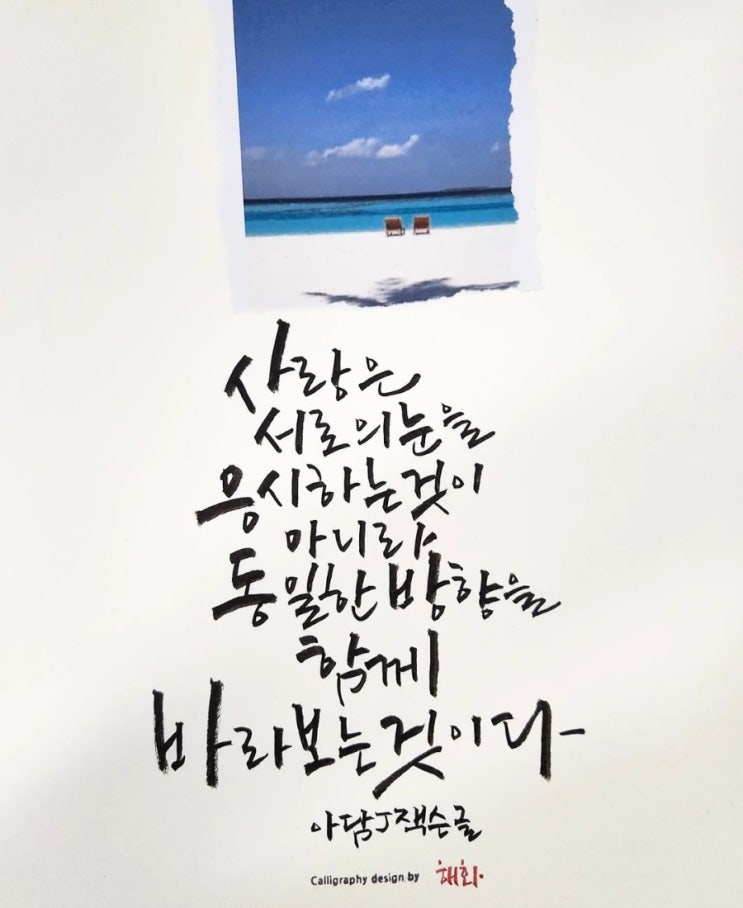 사랑은
서로의눈을
응시하는것이
아니라
동일한방향을
함께
바라보는것이다
아담J잭슨글
Calligraphy design by 해화.